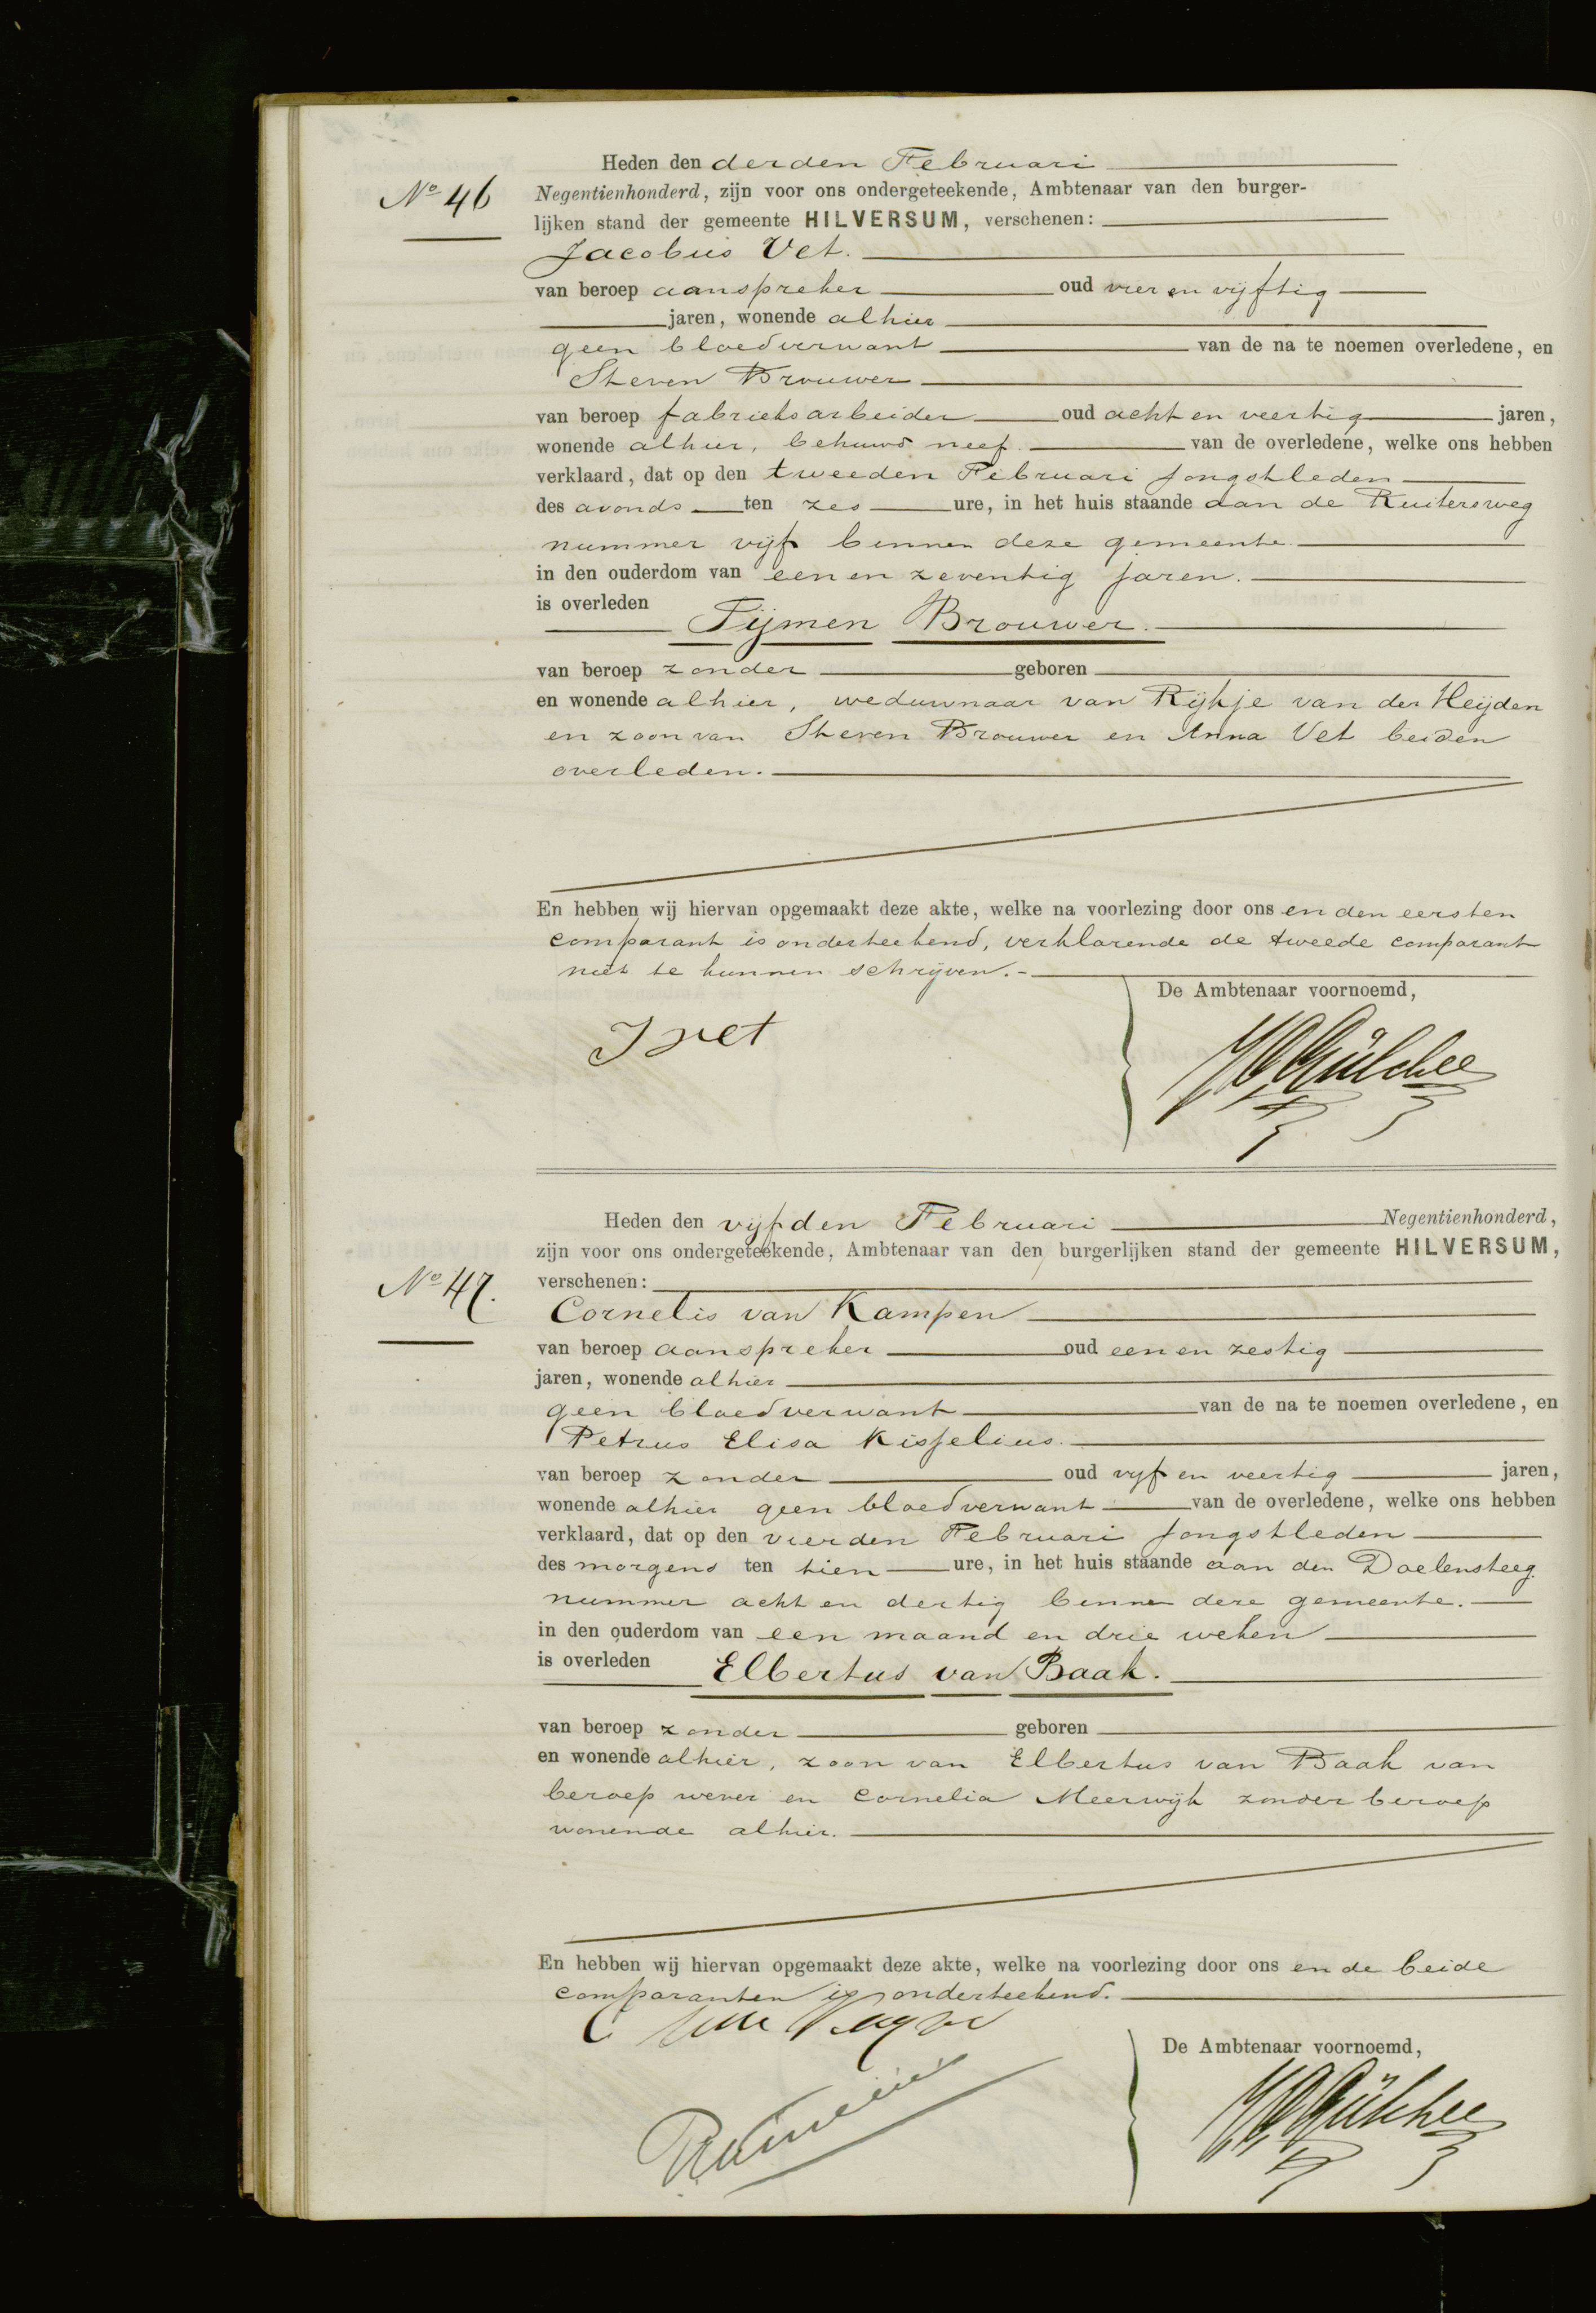 Heden den derden Februari
No 46
Negentienhonderd, zijn voor ons ondergeteekende, Ambtenaar van den burger-
lijken stand der gemeente HILVERSUM, verschenen:
Jacobus Vet.
van beroep aanspreker oud vier en vijftig
jaren, wonende alhier
geen bloedverwant van de na te noemen overledene, en
Steven Brouwer
van beroep fabrieksarbeider oud acht en veertig jaren,
wonende alhier, behuwd neef van de overledene, welke ons hebben
verklaard, dat op den tweeden Februari jongstleden
des avonds ten zes ure, in het huis staande aan de Ruitersweg
nummer vijf binnen deze gemeente
in den ouderdom van een en zeventig jaren.
is overleden
Tijmen Brouwer.
van beroep zonder geboren
en wonende alhier, weduwnaar van Rijkje van der Heijden
en zoon van Steven Brouwer en Anna Vet beiden
overleden.
En hebben wij hiervan opgemaakt deze akte, welke na voorlezing door ons en den eersten
comparant is onderteekend, verklarende de tweede comparant
niet te kunnen schrijven.-
De Ambtenaar voornoemd,
J Vet
Heden den vijfden Februari Negentienhonderd,
zijn voor ons ondergeteekende, Ambtenaar van den burgerlijken stand der gemeente HILVERSUM,
No 47.
verschenen:
Cornelis van Kampen
van beroep aanspreker oud een en zestig
jaren, wonende alhier
geen bloedverwant van de na te noemen overledene, en
Petrus Elisa Kisselius.
van beroep zonder oud vijf en veertig jaren,
wonende alhier geen bloedverwant van de overledene, welke ons hebben
verklaard, dat op den vierden Februari jongstleden
des morgens ten tien ure, in het huis staande aan den Doelensteeg
nummer acht en dertig binnen deze gemeente.
in den ouderdom van een maand en drie weken
is overleden Elbertus van Baak.
van beroep zonder geboren
en wonende alhier, zoon van Elbertus van Baak van
beroep wever en Cornelia Meerwijk zonder beroep
wonende alhier.
En hebben wij hiervan opgemaakt deze akte, welke na voorlezing door ons en de beide
comparanten is onderteekend.
De Ambtenaar voornoemd,